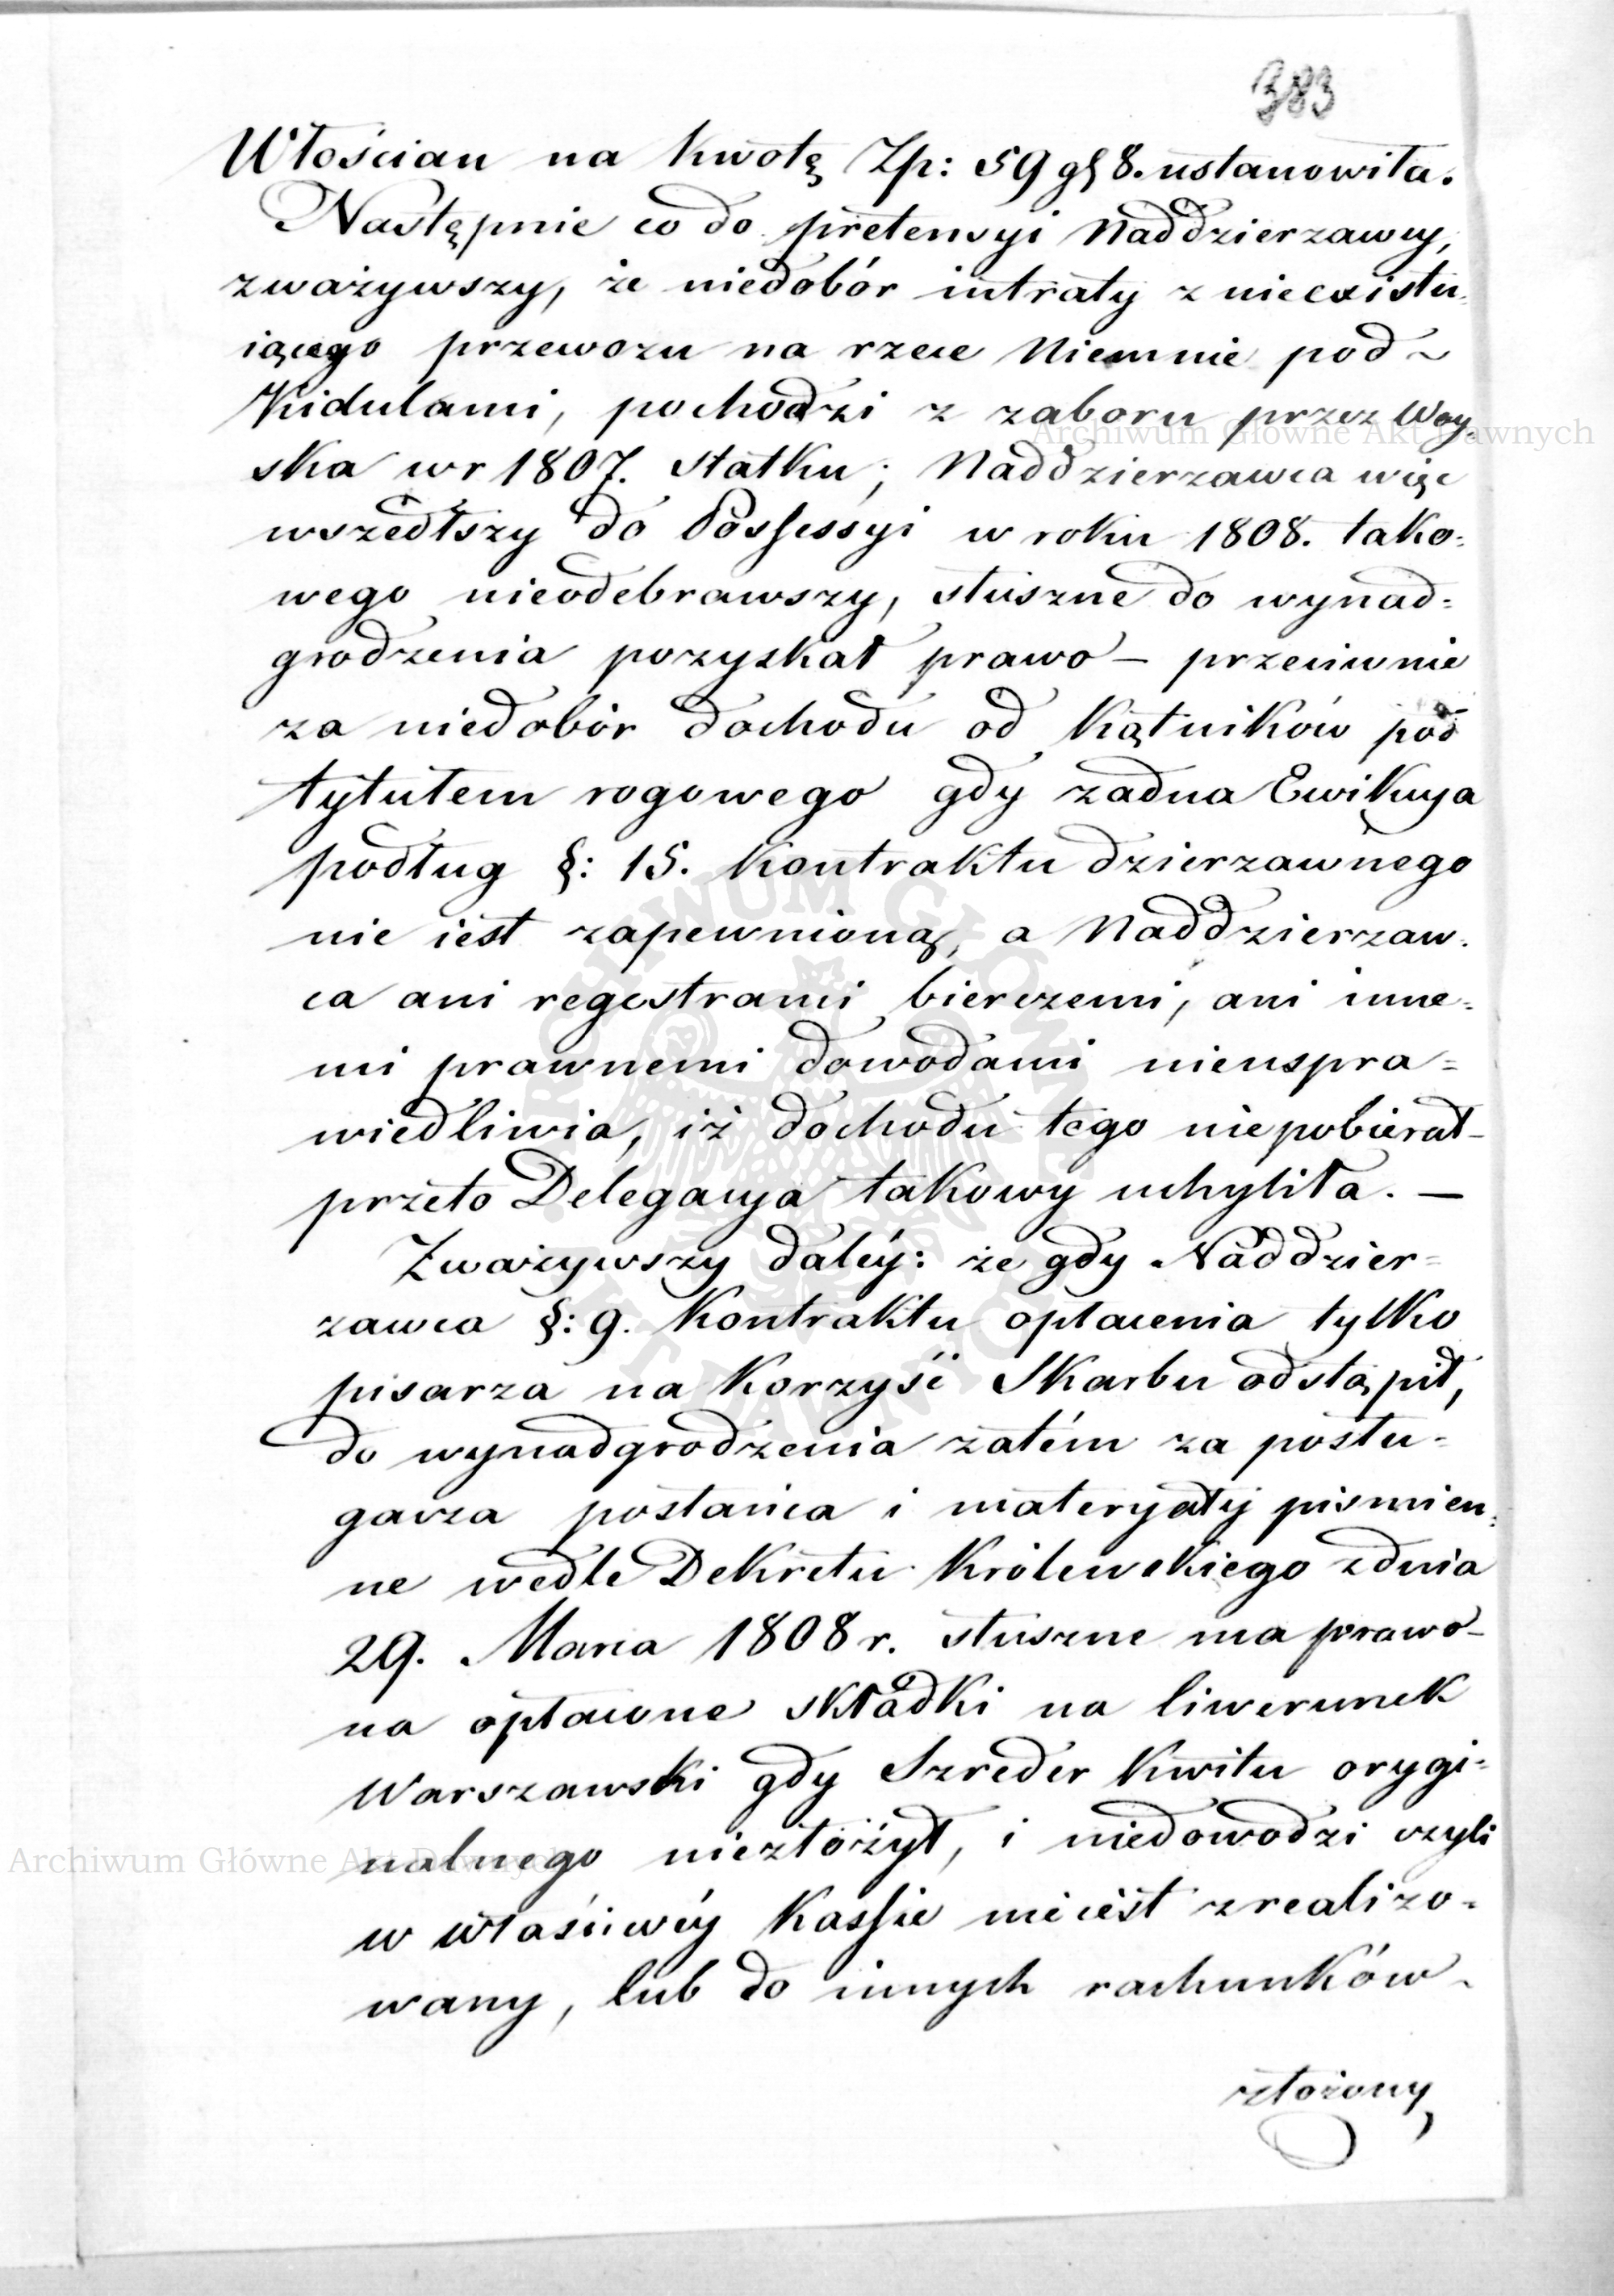 383
Włościan na kwotę Zp: 59 gs 8. ustanowiła.
Następnie co do pretensyi Naddzierzawcy,
zważywszy, że niedobór intraty z nieexistu-
iącego przewozu na rzece Niemnie pod ~
Kidulami, pochodzi z zaboru przez Woy-
ska w r 1807. statku; Naddzierzawca więc
wszedłszy do Possessyi w roku 1808. tako-
wego nieodebrawszy, słuszne do wynad-
grodzenia pozyskał prawo – przeciwnie
za niedobór dochodu od kątników pod
tytułem rogowego gdy żadna Ewikcya
podług §: 15. kontraktu dzierzawnego
nie iest zapewnioną, a Naddzierzaw-
ca ani regestrami bierczemi, ani inne-
mi prawnemi dowodami nieuspra-
wiedliwia, iż dochodu tego niepobierał –
przeto Delegacya takowy uchyliła. –
Zważywszy daléy: że gdy Naddzier-
zawca §: 9. kontraktu opłacenia tylko
pisarza na korzyść Skarbu odstąpił,
do wynadgrodzenia zatém za posłu-
gacza posłańca i materyały pismien-
ne wedle Dekretu Królewskiego z dnia
29. Marca 1808 r. słuszne ma prawo –
na opłacone składki na liwerunek
Warszawski gdy Szreder kwitu orygi-
nalnego niezłożył, i niedowodzi czyli
w właściwéy Kassie nieiest zrealizo-
wany, lub do innych rachunków ~
złożony
Archiwum Główne Akt Dawnych
Archiwum Główne Akt Dawnych
ARCHIWUM GŁÓWNE AKT DAWNYCH